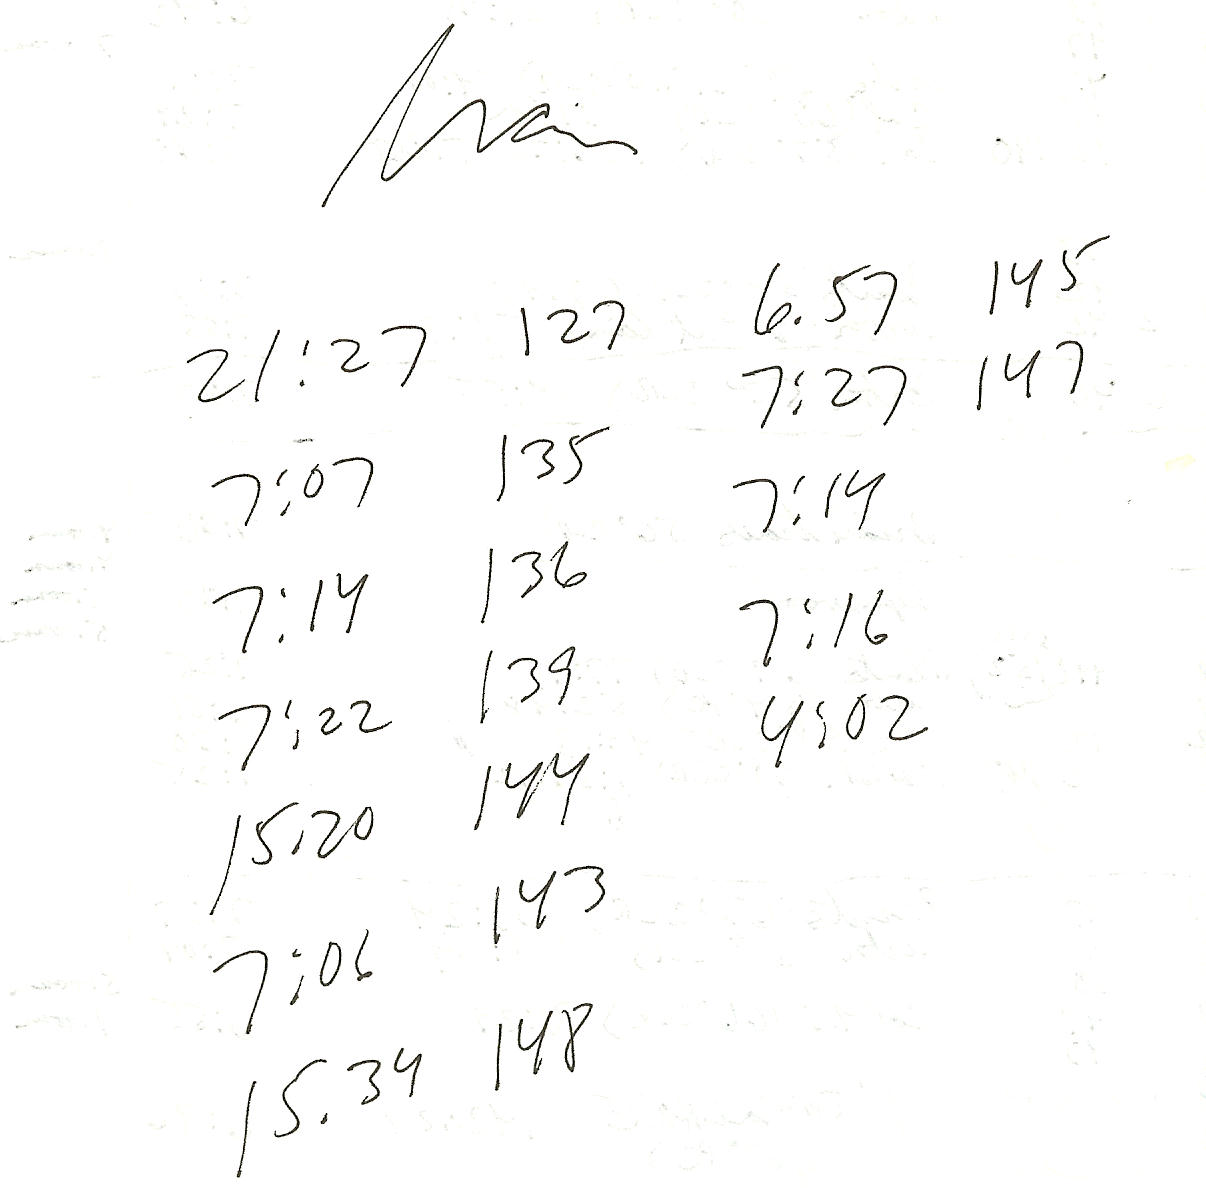 21:27 127
7:07 135
7:14 136
7:22 139
15:20 144
7:06 143
15.34 148
6.57 145
7:27 147
7:14
7:16
4:02